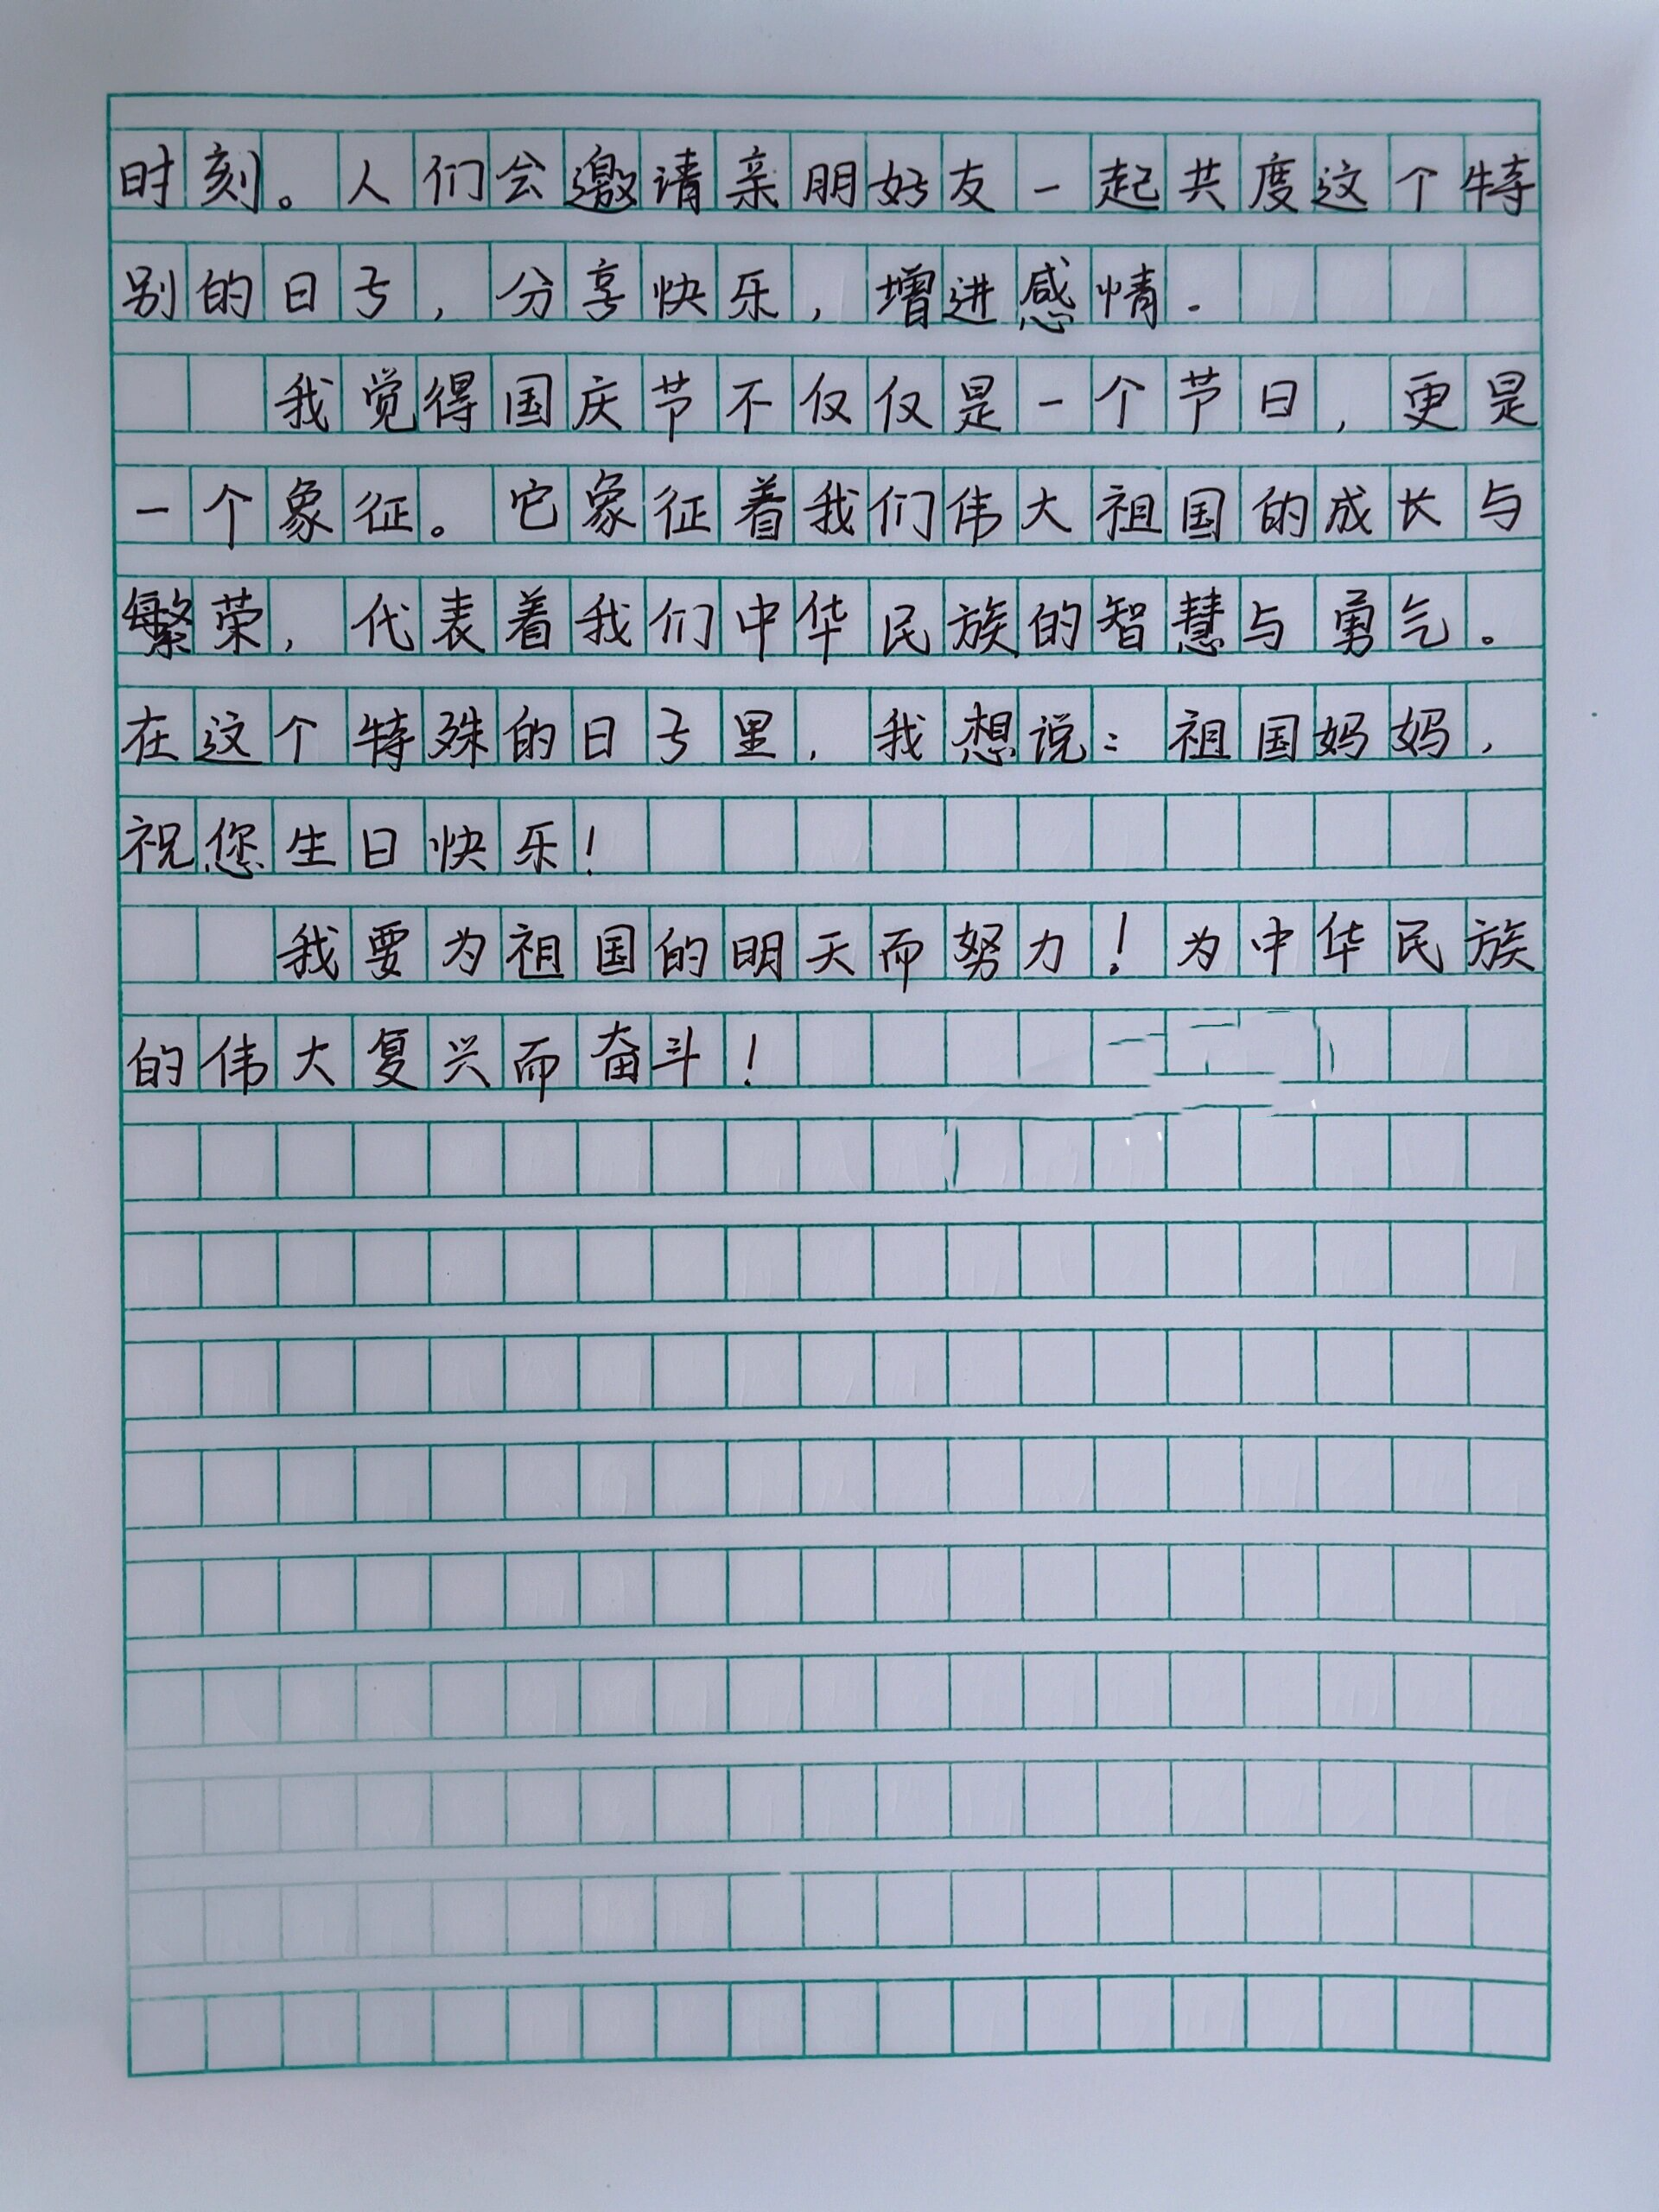 时刻。人们会邀请亲朋好友一起共度这个特
别的日子，分享快乐，增进感情.
我觉得国庆节不仅仅是一个节日，更是
一个象征。它象征着我们伟大祖国的成长与
繁荣，代表着我们中华民族的智慧与勇气。
在这个特殊的日子里，我想说：祖国妈妈，
祝您生日快乐！
我要为祖国的明天而努力！为中华民族
的伟大复兴而奋斗！